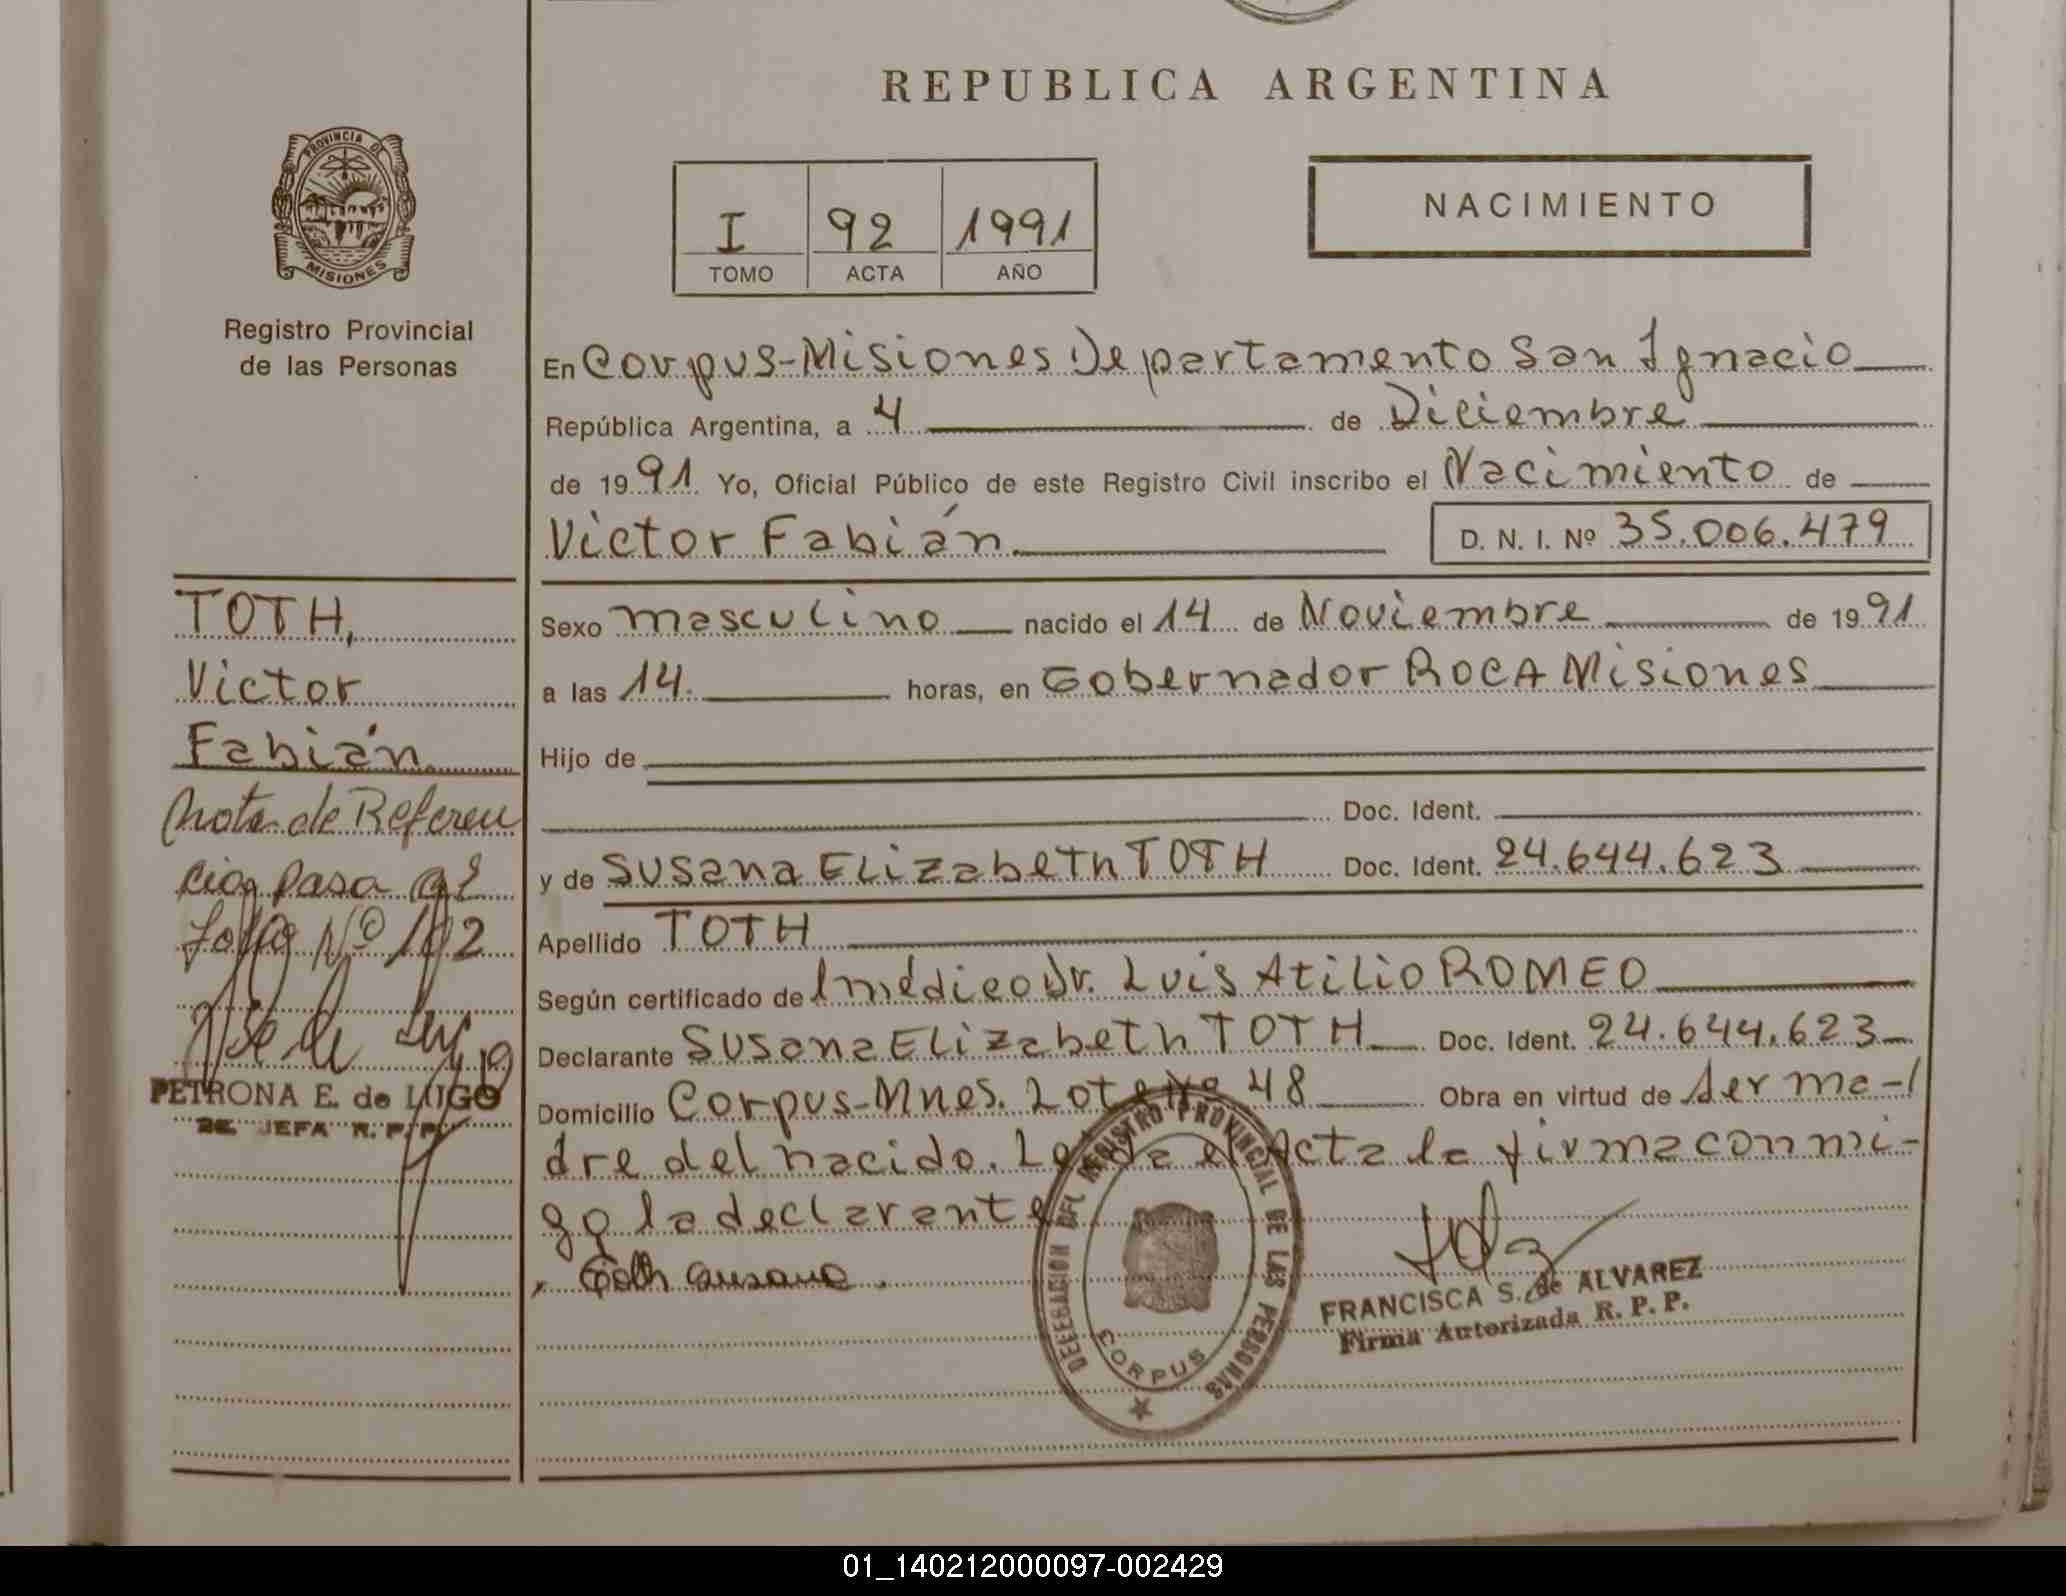 REPUBLICA ARGENTINA
PROVINCIA DE
MISIONES
Registro Provincial
de las Personas
I 92 1991
TOMO ACTA AÑO
NACIMIENTO
En Corpus-Misiones Departamento San Ignacio
República Argentina, a 4 de Diciembre
de 1991 Yo, Oficial Público de este Registro Civil inscribo el Nacimiento de
Victor Fabián D. N. I. Nº 35.006.479
TOTH,
Victor
Fabián
Nota de Referen
cia, pasa al
folio Nº 102
PETRONA E. de LUGO
2E. JEFA R. P. P.
Sexo masculino nacido el 14 de Noviembre de 1991
a las 14. horas, en Gobernador ROCA Misiones
Hijo de
Doc. Ident.
y de Susana ELizabeth TOTH Doc. Ident. 24.644.623
Apellido TOTH
Según certificado de l médico Dr. Luis Atilio ROMEO
Declarante Susana ELizabeth TOTH Doc. Ident. 24.644.623
Domicilio Corpus-Mnes. Lote Nº 48 Obra en virtud de ser ma-
dre del nacido. Leída el Acta la firma conmi-
go la declarante
Toth Susana.
DELEGACION DEL REGISTRO PROVINCIAL DE LAS PERSONAS
CORPUS
FRANCISCA S. de ALVAREZ
Firma Autorizada R. P. P.
01_140212000097-002429